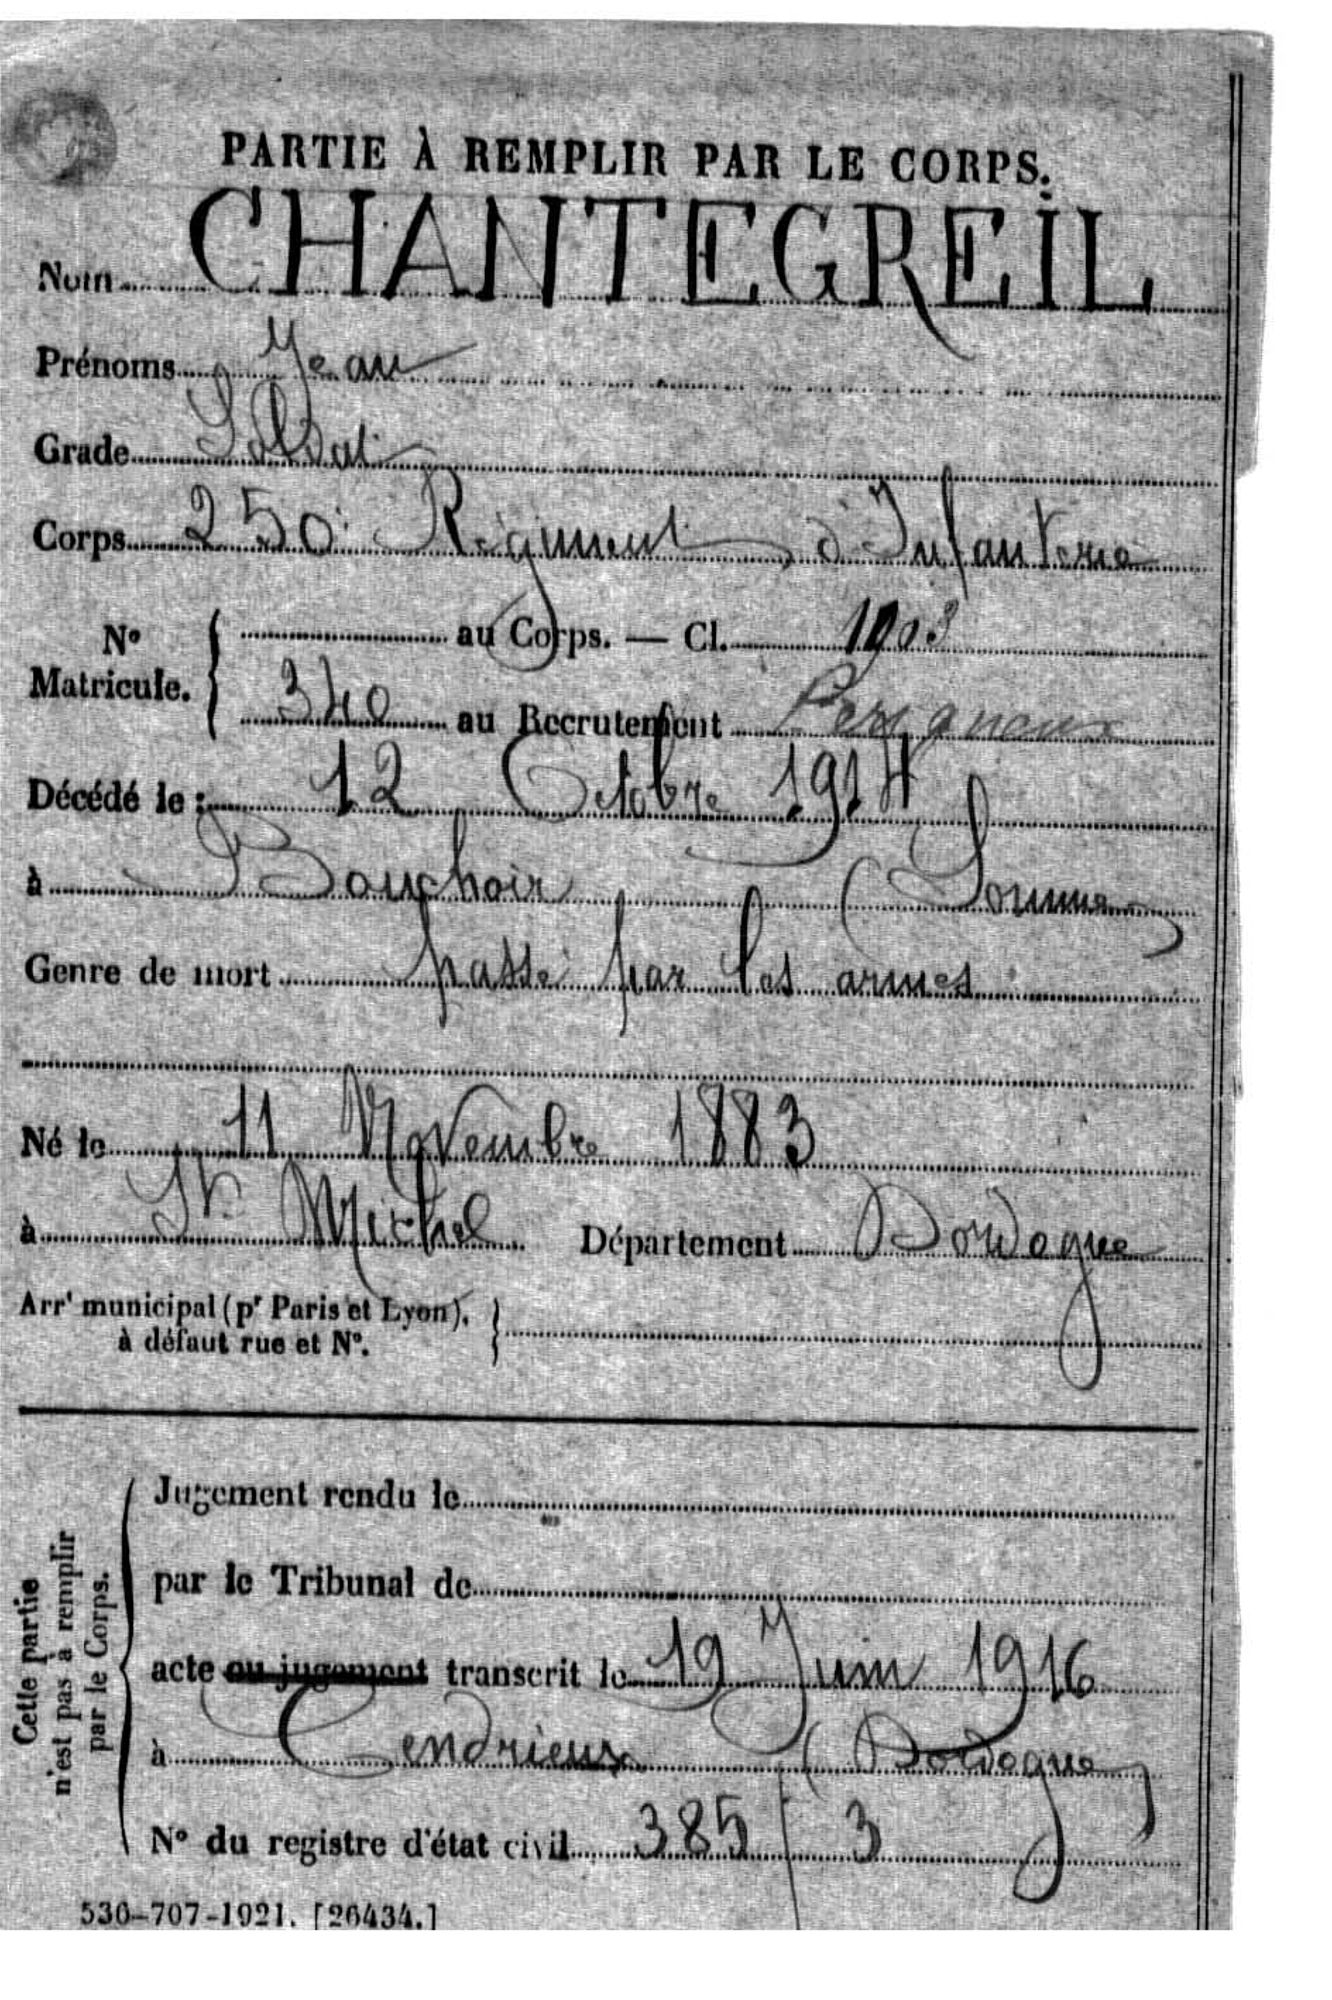 PARTIE À REMPLIR PAR LE CORPS.
Nom CHANTEGREIL
Prénoms Jean
Grade Soldat
Corps 250e Régiment d'Infanterie
N° Matricule. au Corps. — Cl. 1903
340 au Recrutement Périgueux
Décédé le : 12 Octobre 1914
à Bouchoir (Somme)
Genre de mort passé par les armes
Né le 11 Novembre 1883
à St Michel Département Dordogne
Arrt municipal (pr Paris et Lyon),
à défaut rue et N°.
Cette partie n'est pas à remplir par le Corps.
Jugement rendu le
par le Tribunal de
acte ou jugement transcrit le 19 Juin 1916
à Cendrieux (Dordogne)
N° du registre d'état civil 385/3
530-707-1921. [26434.]